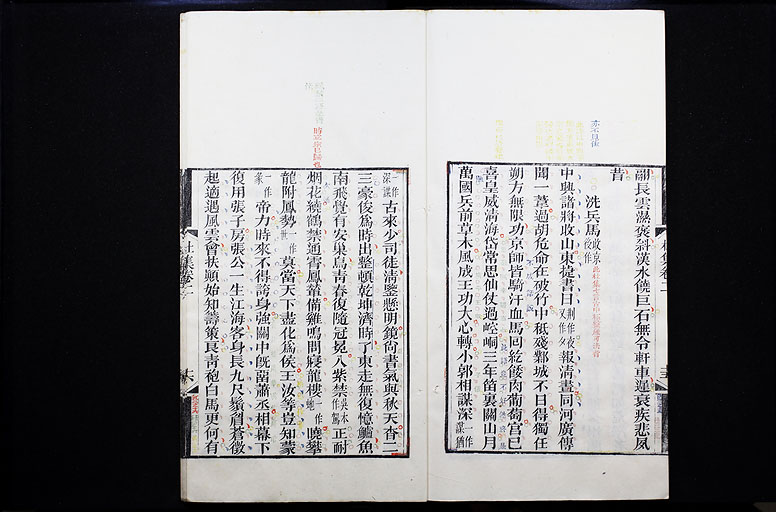 副長雲濕褒斜漢水饒巨石無令軒車遲衰疾悲夙
昔
洗兵馬收京後作
中興諸將收山東捷書日一作夕報清晝同河廣傳
聞一葦過胡危命在破竹中秖殘鄴城不日得獨任
朔方無限功京師皆騎汗血馬回紇餧肉葡萄宮已
喜皇威清海岱常思仙仗過崆峒三年笛裏關山月
萬國兵前草木風成王功大心轉小郭相謀深一作謀猶
一作深謀古來少司徒清鑒懸明鏡尚書氣與秋天杳二
三豪俊爲時出整頓乾坤濟時了東走無復憶鱸魚
南飛覺有安巢鳥青春復隨冠冕入紫禁正耐
烟花繞鶴禁通霄鳳輦備雞鳴問寢龍樓曉攀
龍附鳳勢一作世莫當天下盡化爲侯王汝等豈知蒙
帝力時來不得誇身強關中旣留蕭丞相幕下
復用張子房張公一生江海客身長九尺鬚眉蒼徵
起適遇風雲會扶顚始知籌策良青袍白馬更何有
杜集卷二